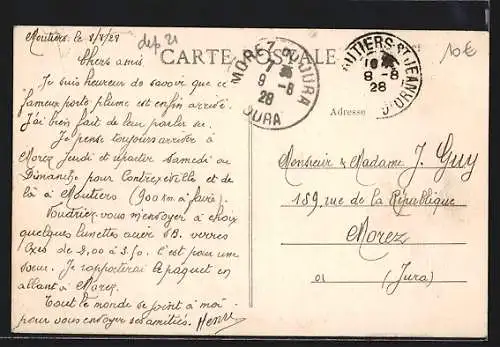 Moutiers, le 8/8/28
dep. 21
CARTE POSTALE
MOREZ-DU-JURA
9 -8
28
JURA
MOUTIERS-ST-JEAN
8 -8
28
10€
Chers amis,
Je suis heureux de savoir que ce
fameux porte plume est enfin arrivé.
J'ai bien fait de leur parler sec.
Je pense toujours arriver à
Morez Jeudi et repartir samedi ou
Dimanche pour Contrexéville et de
là à Moutiers (900 km à faire).
Voudriez-vous m'envoyer à choix
quelques lunettes acier SB. verres
axes de 2,00 à 3,50. C'est pour une
soeur. Je rapporterai le paquet en
allant à Morez.
Tout le monde se joint à moi
pour vous envoyer ses amitiés. Henri
Adresse
Monsieur & Madame J. Guy
189, rue de la République
Morez
(Jura)